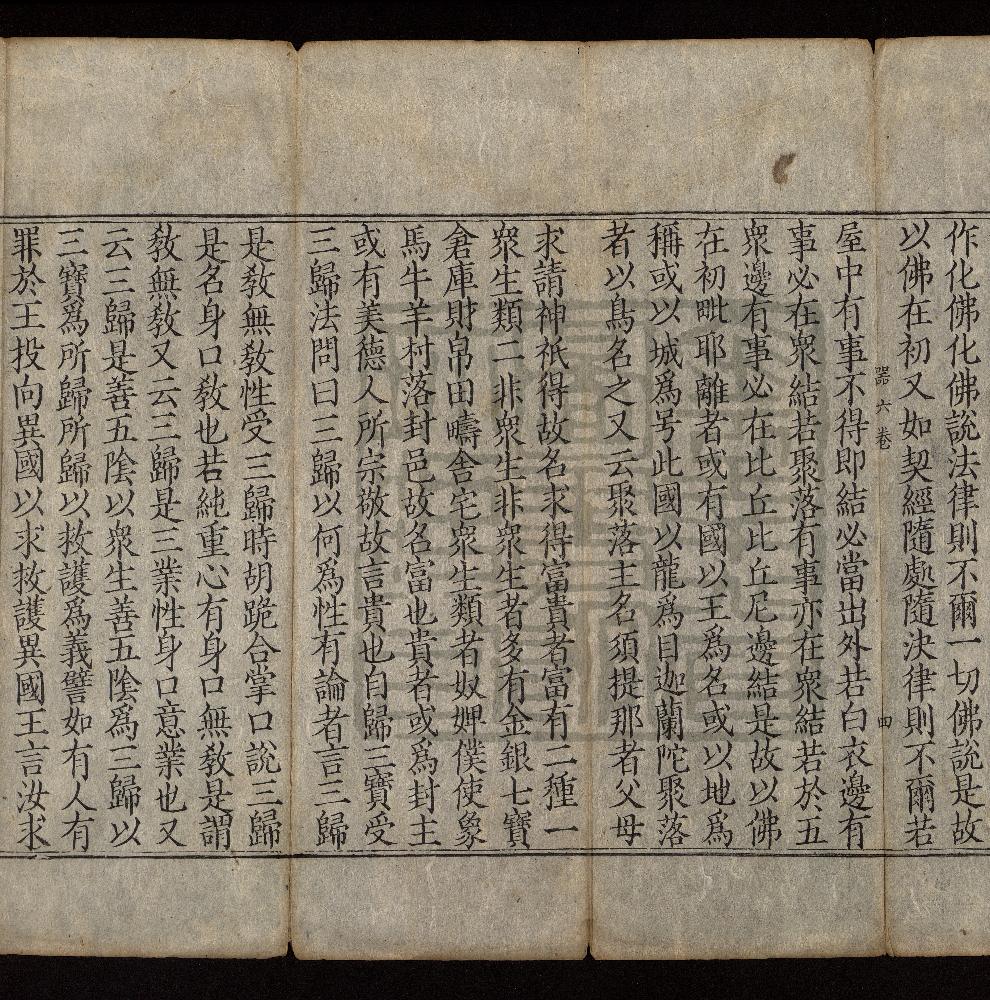 作化佛化佛說法律則不爾一切佛說是故
以佛在初又如契經隨處隨決律則不爾若
器六卷 四
屋中有事不得即結必當出外若白衣邊有
事必在衆結若聚落有事亦在衆結若於五
衆邊有事必在比丘比丘尼邊結是故以佛
在初毗耶離者或有國以王爲名或以地爲
稱或以城爲号此國以龍爲目迦蘭陀聚落
者以鳥名之又云聚落主名須提那者父母
求請神祇得故名求得富貴者富有二種一
衆生類二非衆生非衆生者多有金銀七寶
倉庫財帛田疇舍宅衆生類者奴婢僕使象
馬牛羊村落封邑故名富也貴者或爲封主
或有美德人所宗敬故言貴也自歸三寶受
三歸法問曰三歸以何爲性有論者言三歸
是教無教性受三歸時胡跪合掌口說三歸
是名身口教也若純重心有身口無教是謂
教無教又云三歸是三業性身口意業也又
云三歸是善五陰以衆生善五陰爲三歸以
三寶爲所歸所歸以救護爲義譬如有人有
罪於王投向異國以求救護異國王言汝求